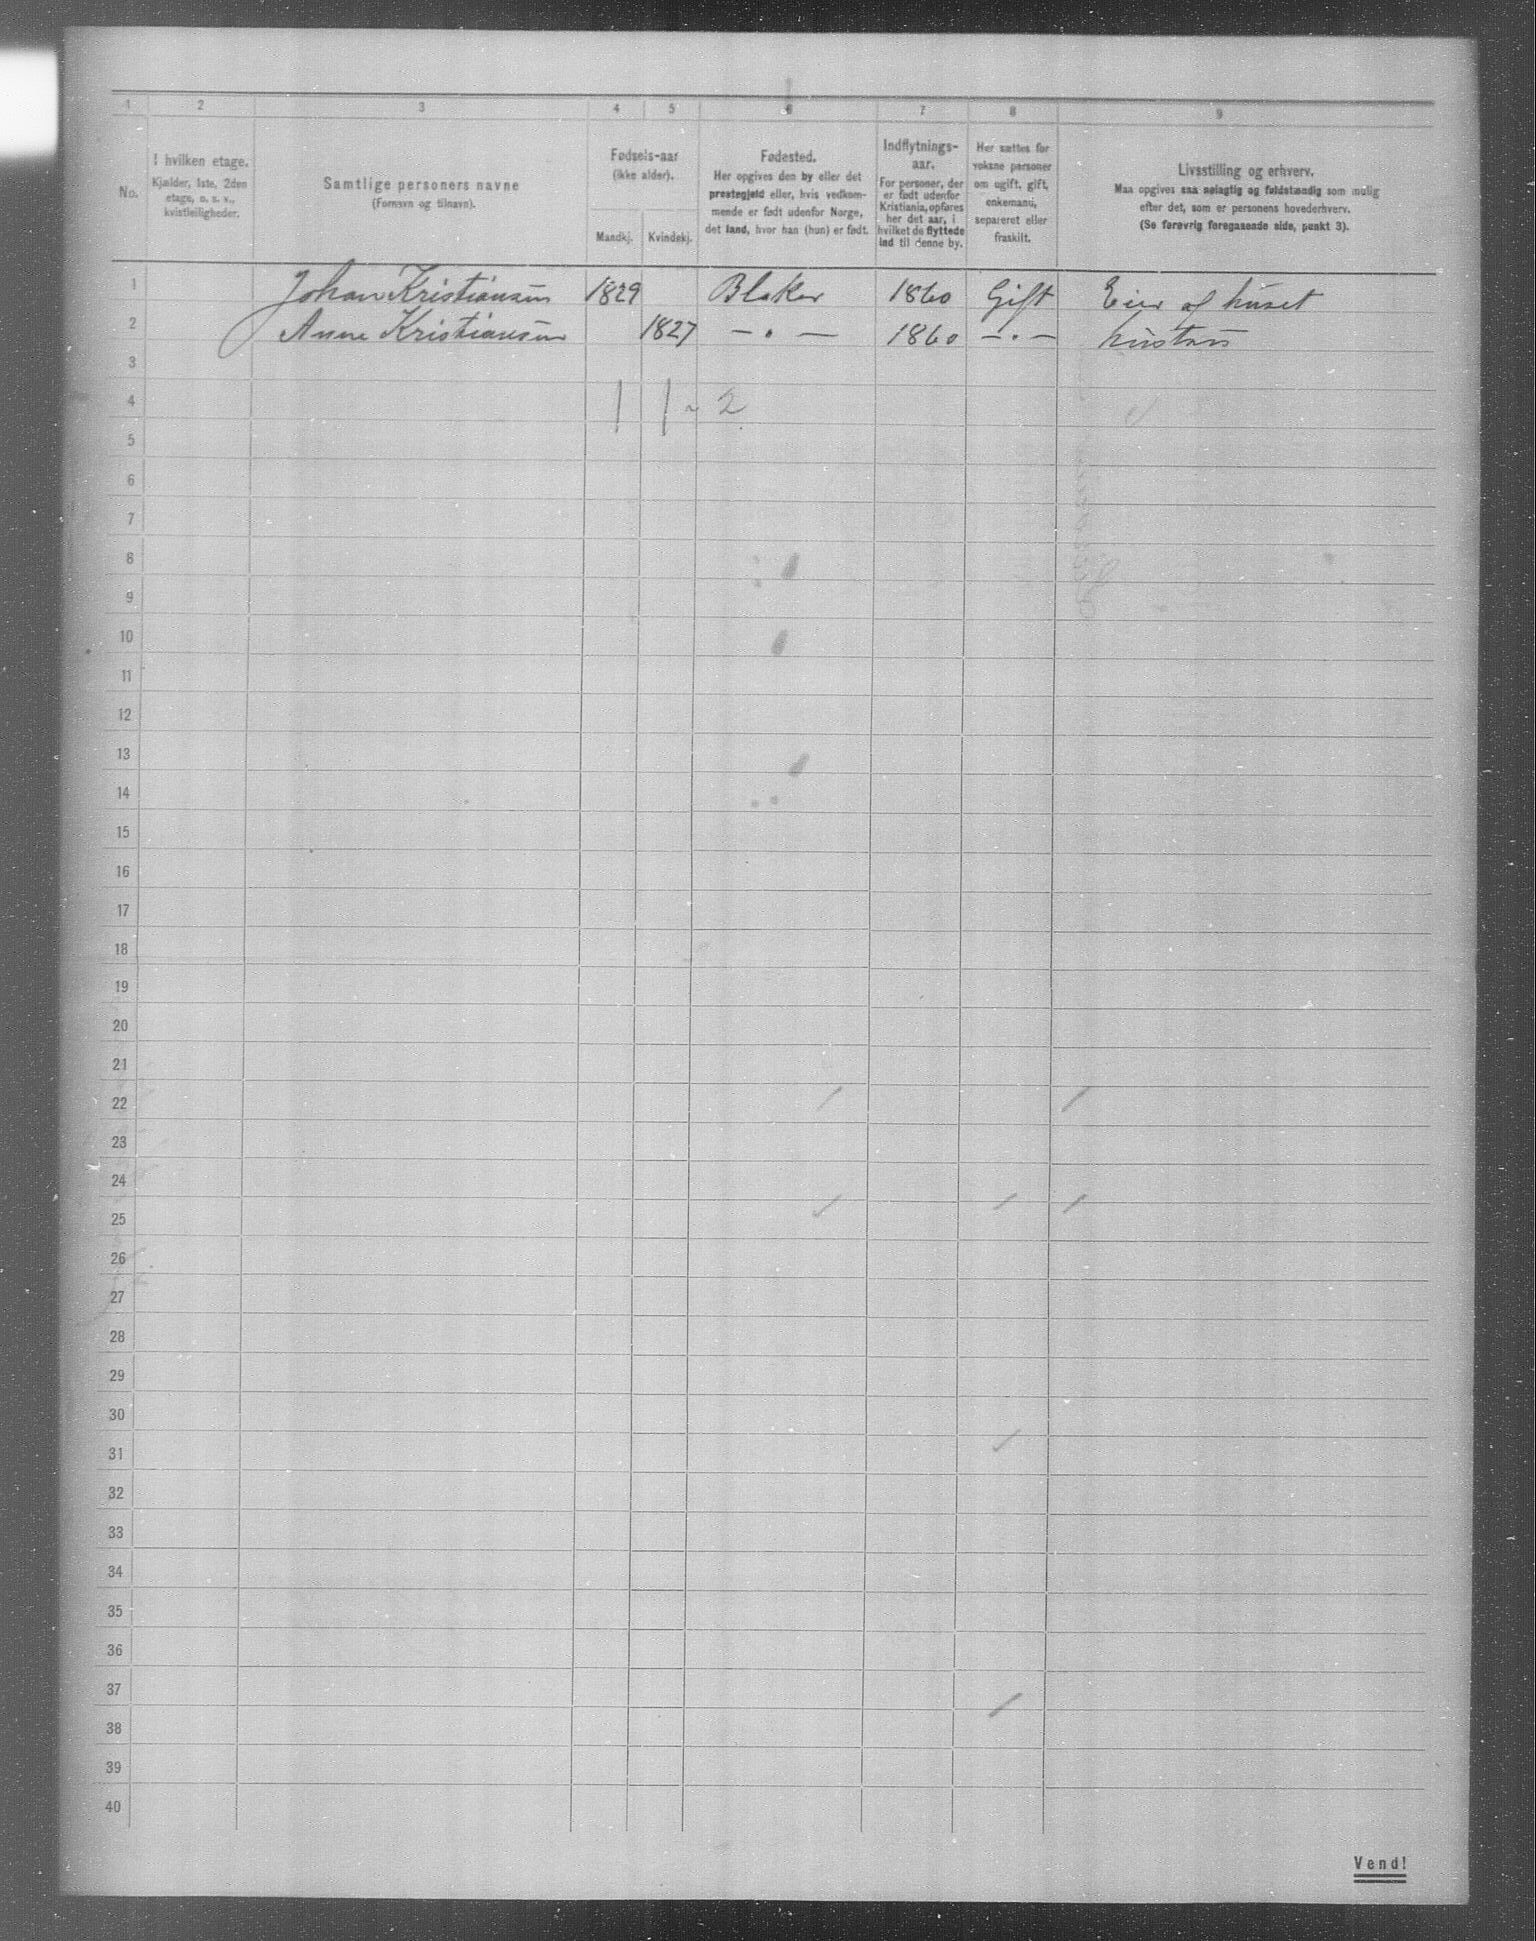 1 2 3 4 5 6 7 8 9
No.
I hvilken etage.
Kjælder, 1ste, 2den
etage, o. s. v.,
kvistleiligheder.
Samtlige personers navne
(Fornavn og tilnavn).
Fødsels-aar
(ikke alder).
Mandkj. Kvindekj.
Fødested.
Her opgives den by eller det
prestegjeld eller, hvis vedkom-
mende er født udenfor Norge,
det land, hvor han (hun) er født.
Indflytnings-
aar.
For personer, der
er født udenfor
Kristiania, opføres
her det aar, i
hvilket de flyttede
ind til denne by.
Her sættes for
voksne personer
om ugift, gift,
enkemand,
separeret eller
fraskilt.
Livsstilling og erhverv.
Maa opgives saa nøiagtig og fuldstændig som mulig
efter det, som er personens hovederhverv.
(Se forøvrig foregaaende side, punkt 3).
1 Johan Kristiansen 1829 Blaker 1860 Gift Eier af huset
2 Anne Kristiansen 1827 — • — 1860 — • — hustru
3
4 1 1 ~ 2
5
6
7
8
9
10
11
12
13
14
15
16
17
18
19
20
21
22
23
24
25
26
27
28
29
30
31
32
33
34
35
36
37
38
39
40
Vend!